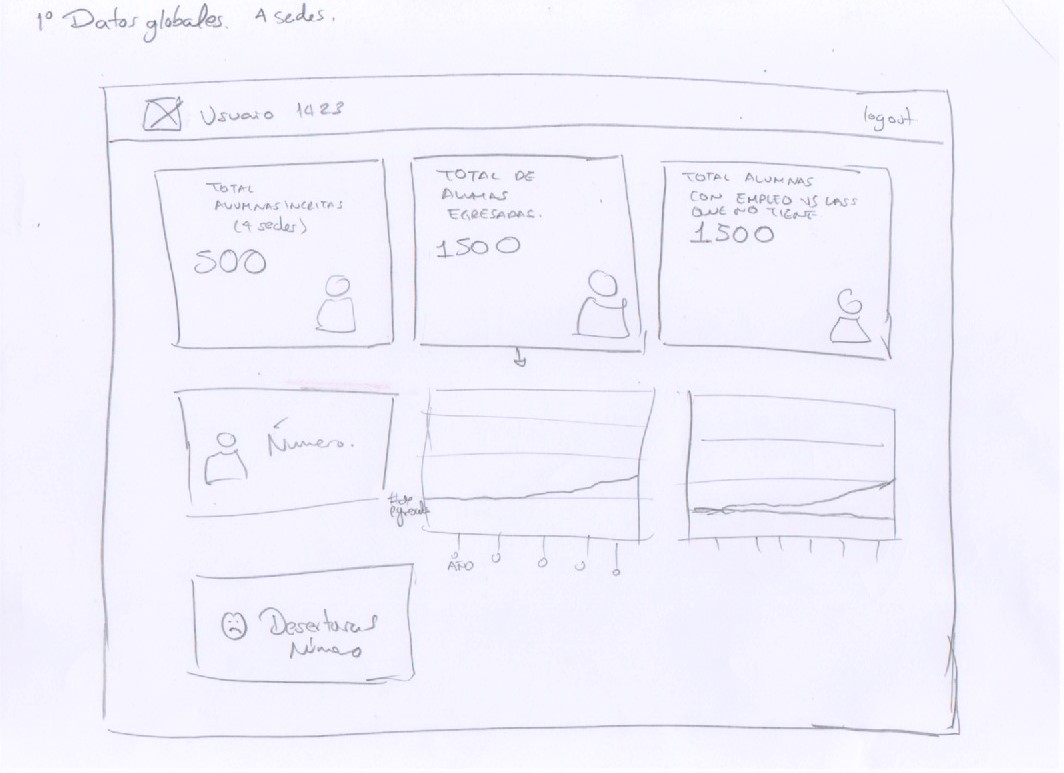 1º Datos globales. 4 sedes.
Usuario 1423
logout
TOTAL
ALUMNAS INCRITAS
(4 sedes)
500
TOTAL DE
ALUMAS
EGRESADAS.
1500
TOTAL ALUMNAS
CON EMPLEO VS LASS
QUE NO TIENE
1500
Número.
AÑO
Desertoras
Número